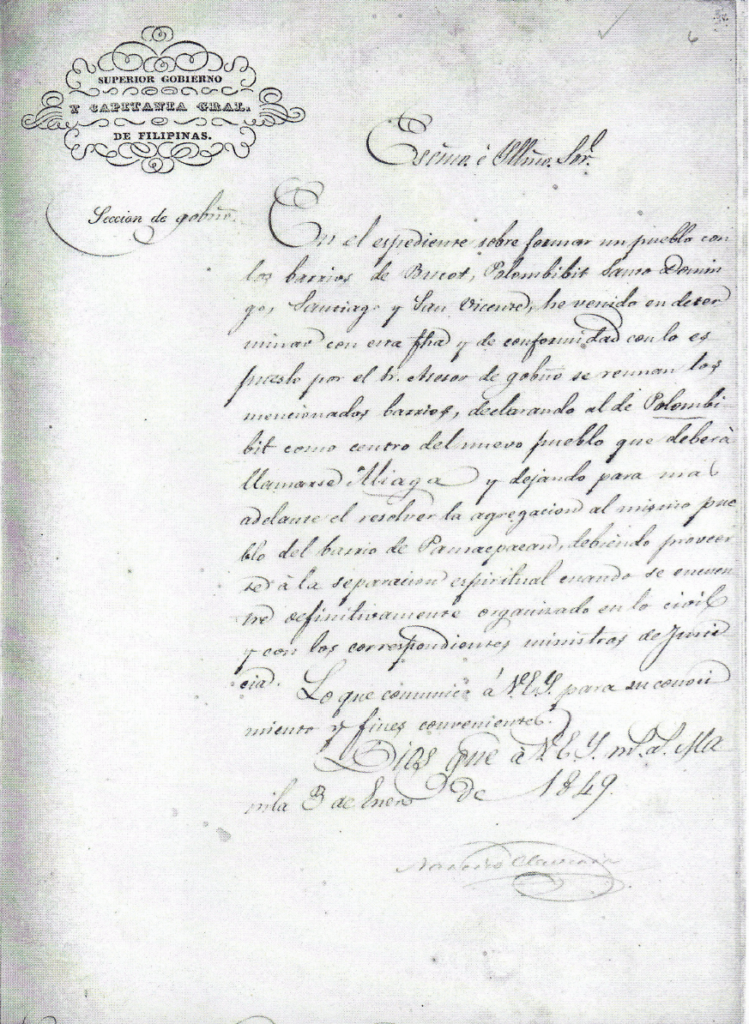 6
SUPERIOR GOBIERNO
Y CAPITANIA GRAL.
DE FILIPINAS.
Escmo. é Yllmo. Sor.
Seccion de gobno.
En el espediente sobre formar un pueblo con
los barrios de Bucot, Polombibit Santo Domin
go, Santiago y San Vicente, he venido en deter
minar con esta fha y de conformidad con lo es
puesto por el Sr. Asesor de gobno se reunan los
mencionados barrios, declarando al de Polombi
bit como centro del nuevo pueblo que deberá
llamarse Aliaga y dejando para mas
adelante el resolver la agregacion al mismo pue
blo del barrio de Pamacpacan, debiendo proveer
se á la separacion espiritual cuando se encuen
tre definitivamente organizado en lo civil
y con los correspondientes ministros de Justi
cia. Lo que comunico á V.E.Y. para su conoci
miento y fines convenientes.
Dios gue á V.E.Y. m.s a.s Ma
nila 3 de Enero de 1849.
Narciso Claveria